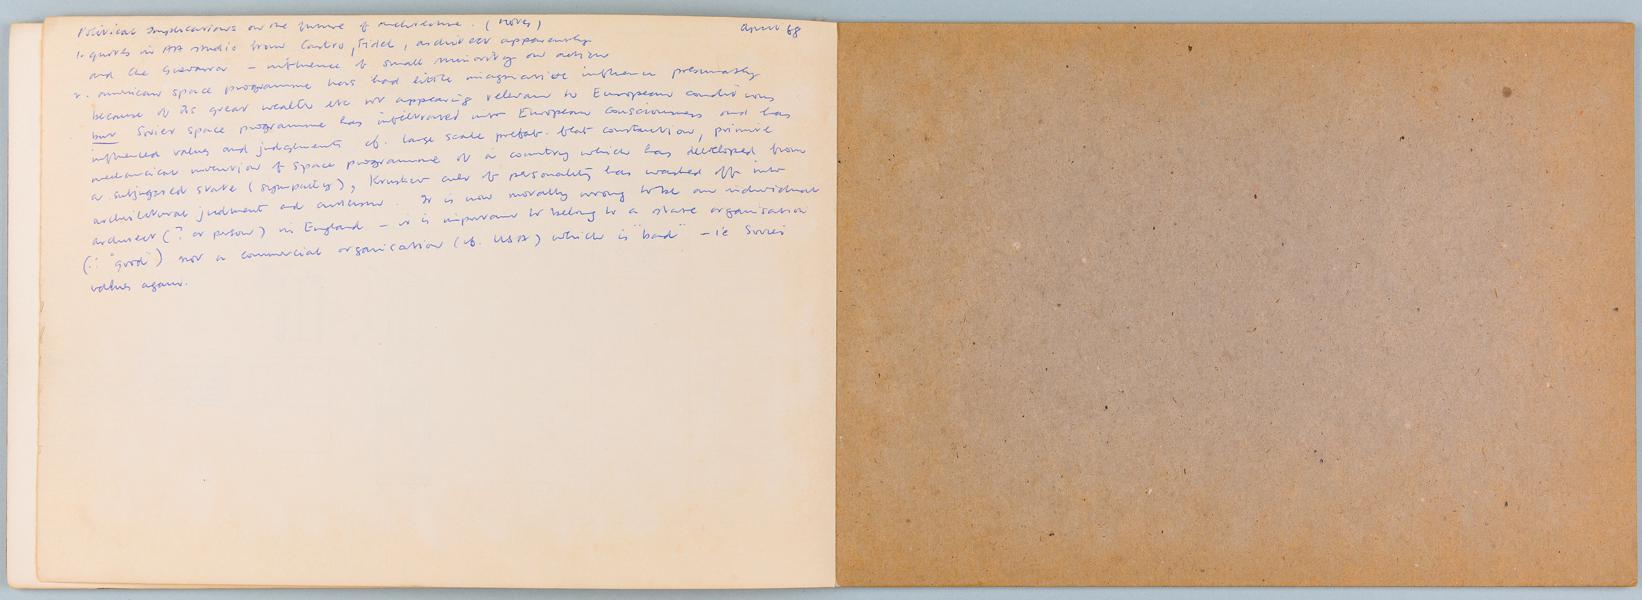 Political Implications on the future of architecture. (notes) April 68
1. quotes in AA studio from Castro, Fidel, architect apparently
and Che Guevarra – influence of small minority on action
2. american space programme has had little imaginative influence presumably
because of its great wealth etc not appearing relevant to European conditions
but Soviet space programme has infiltrated into European consciousness and has
influenced values and judgments cf. large scale prefab. flat construction, primitive
mechanical of space programme of a country which has developed from
a subjugated state (sympathy), Kruskev cult of personality has washed off into
architectural judgment and criticism. It is now morally wrong to be an individual
architect (? or person) in England – it is important to belong to a state organisation
(∴ "good") not a commercial organisation (cf. USA) which is "bad" – ie Soviet
values again.